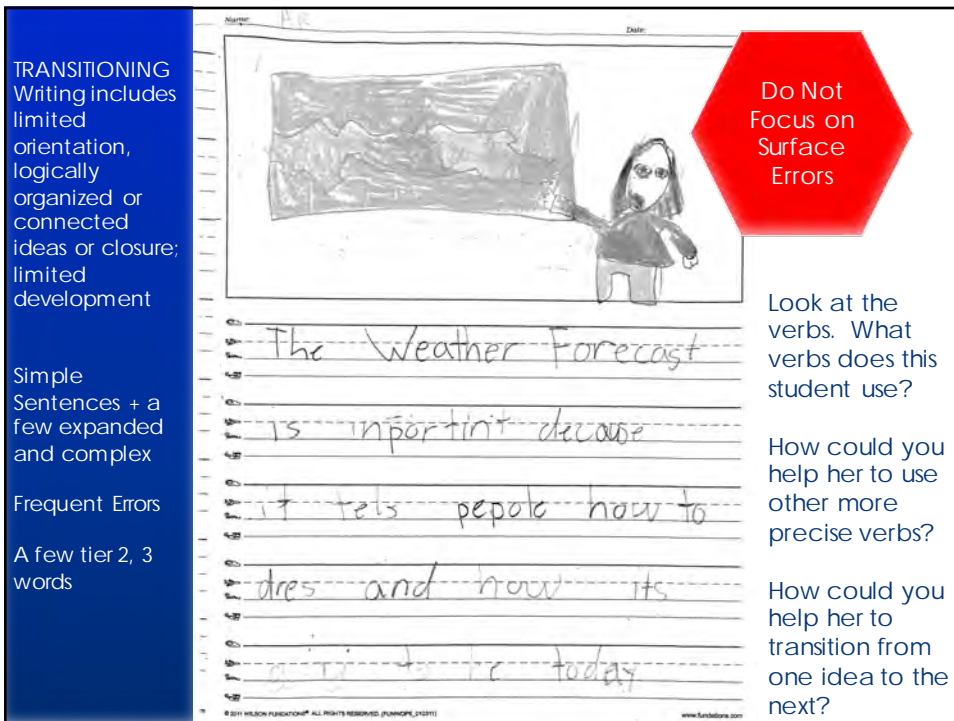 TRANSITIONING
Writing includes
limited
orientation,
logically
organized or
connected
ideas or closure;
limited
development
Simple
Sentences + a
few expanded
and complex
Frequent Errors
A few tier 2, 3
words
Name:
Date:
The Weather Forecast
is inportint decause
it tels pepole how to
dres and how its
to be today
© 2011 WILSON FUNDATIONS® ALL RIGHTS RESERVED. (FUNWOPE_010311)
www.fundations.com
Do Not
Focus on
Surface
Errors
Look at the
verbs. What
verbs does this
student use?
How could you
help her to use
other more
precise verbs?
How could you
help her to
transition from
one idea to the
next?